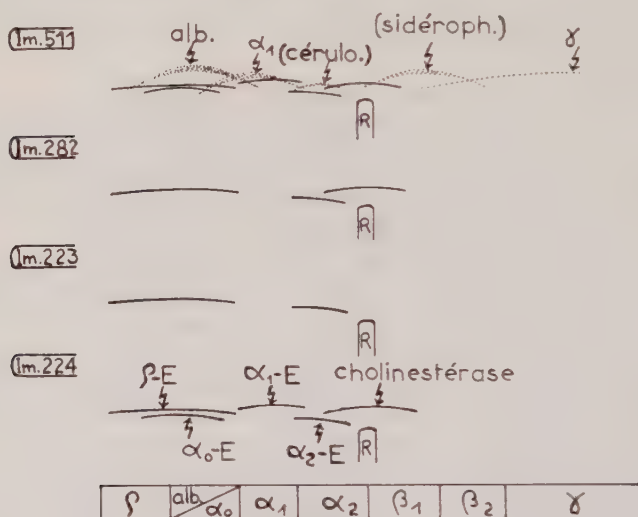 Im.511 alb. α₁ (cérulo.) (sidéroph.) γ
R
Im.282
R
Im.223
R
Im.224
ρ-E α₁-E cholinestérase
α₀-E α₂-E R
ρ alb. α₀ α₁ α₂ β₁ β₂ γ